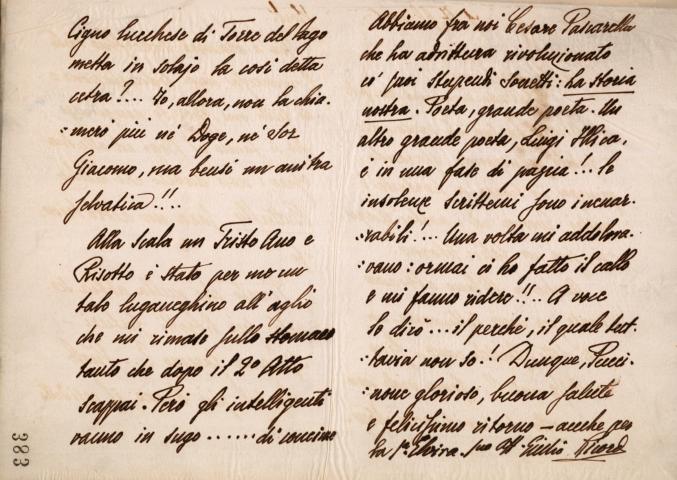 Cigno lucchese di Torre del Lago
metta in solajo la così detta
cetra?... Io, allora, non la chia-
:merò più nè Doge, nè Sor
Giacomo, ma bensì un anitra
selvatica!!..
Alla Scala un Tristo Ano e
Risotto è stato per me un
tale luganeghino all'aglio
che mi rimase sullo stomaco
tanto che dopo il 2º Atto
scappai. Però gli intelligenti
vanno in sugo ...... di concime
383
Abbiamo fra noi Cesare Pascarella
che ha adrittura rivoluzionato
co' suoi stupendi Sonetti: la storia
nostra. Poeta, grande poeta. Un
altro grande poeta, Luigi Illica,
è in una fase di pazzia!.. le
insolenze scrittemi sono inenar-
:rabili!... Una volta mi addolora-
:vano: ormai ci ho fatto il callo
e mi fanno ridere!!.. A voce
le dirò ... il perchè, il quale tut-
:tavia non so! Dunque, Pucci-
:none glorioso, buona salute
e felicissimo ritorno - anche per
la Sª Elvira. suo Giulio Ricordi